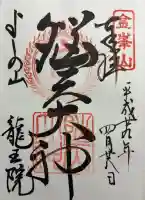 金峯山
奉拝
平成廿九年
四月廿八日
脳天大神
よしの山
龍王院